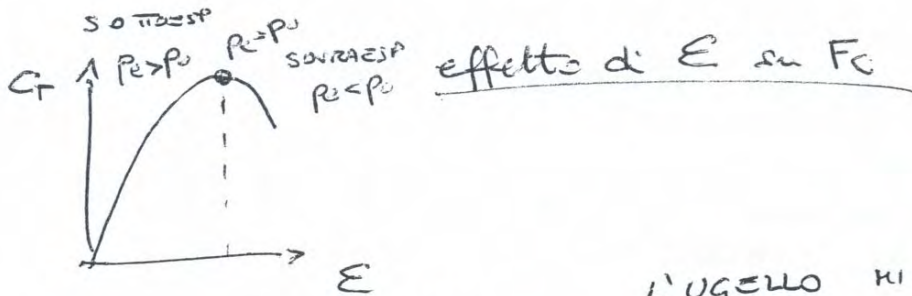 SOTTOESP
pe>p0 pe=p0
SOVRAESP
pe<p0
CT
effetto di ε su Fc
ε
L'UGELLO MI